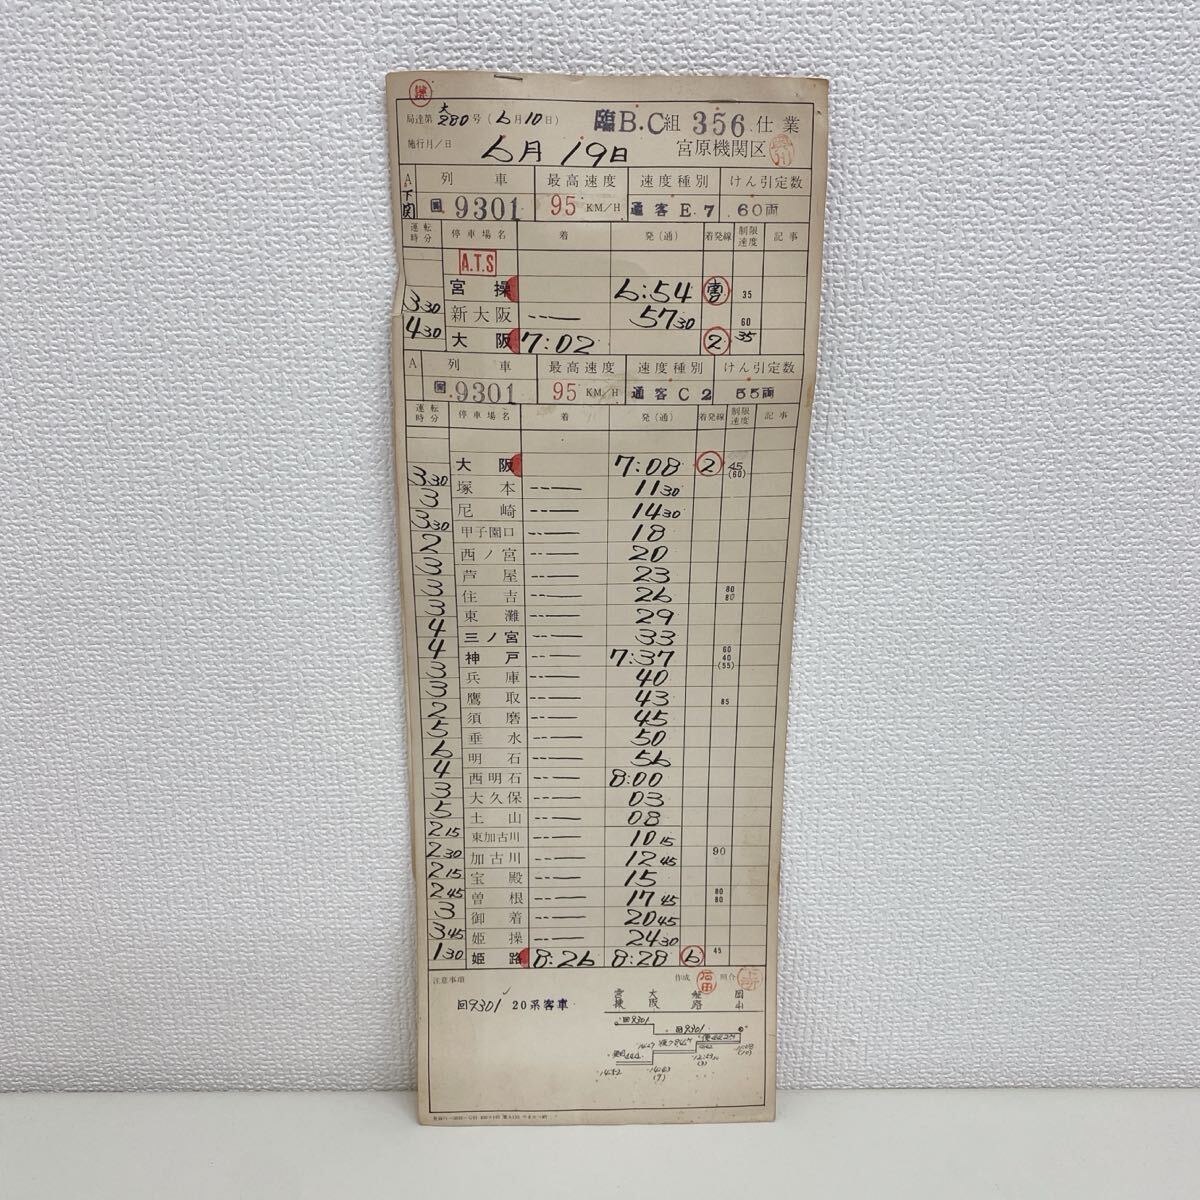 局達第 大280号 (6月10日) 臨B.C組 356 仕業
施行月/日 6月19日 宮原機関区
A 列車 最高速度 速度種別 けん引定数
下関 回 9301 95 KM/H 通客 E.7 60両
運転時分 停車場名 着 発(通) 着発線 制限速度 記事
A.T.S
宮操 6:54 35
3 30 新大阪 57 30 60
4 30 大阪 7:02 2 35
A 列車 最高速度 速度種別 けん引定数
回 9301 95 KM/H 通客 C 2 55両
運転時分 停車場名 着 発(通) 着発線 制限速度 記事
大阪 7:08 2 45 (60)
3 30 塚本 11 30
3 尼崎 14 30
3 30 甲子園口 18
2 西ノ宮 20
3 芦屋 23
3 住吉 26 80 80
3 東灘 29
4 三ノ宮 33
4 神戸 7:37 60 40 (55)
3 兵庫 40
3 鷹取 43 85
2 須磨 45
5 垂水 50
6 明石 56
4 西明石 8:00
3 大久保 03
5 土山 08
2 15 東加古川 10 15
2 30 加古川 12 45 90
2 15 宝殿 15
2 45 曽根 17 45 80 80
3 御着 20 45
3 45 姫操 24 30
1 30 姫路 8:26 8:28 6 45
注意事項 作成 石田 照合
回9301 20系客車
宮操 大阪 姫路 岡山
回9301
回9301